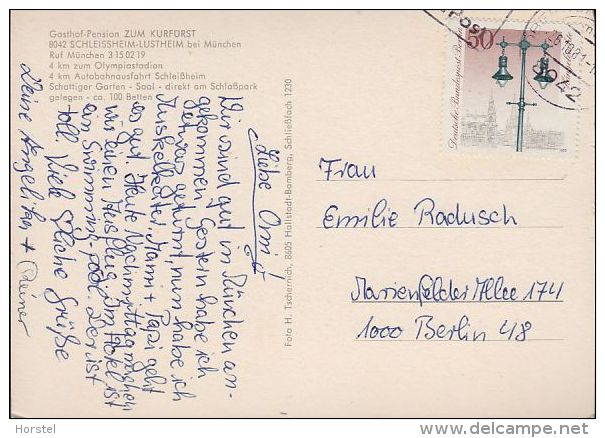 Gasthof-Pension ZUM KURFÜRST
8042 SCHLEISSHEIM-LUSTHEIM bei München
Ruf München 3 15 02 19
4 km zum Olympiastadion
4 km Autobahnausfahrt Schleißheim
Schattiger Garten - Saal - direkt am Schloßpark
gelegen - ca. 100 Betten
Liebe Omi!
Wir sind gut in München an-
gekommen. Gestern habe ich
etwas geturnt nun habe ich
Muskelkater. Mami + Papi geht
es gut. Heute Nachmittag machen
wir einen Ausflug. Im Hotel ist
ein Swimming-pool. Der ist
toll. Viele Grüße
Deine Angelika + Reiner
Foto H. Tschernich, 8605 Hallstadt-Bamberg, Schließfach 1230
50
Deutsche Bundespost Berlin
8042
Frau
Emilie Radusch
Marienfelder Allee 174
1000 Berlin 48
Horstel
www.delcampe.net